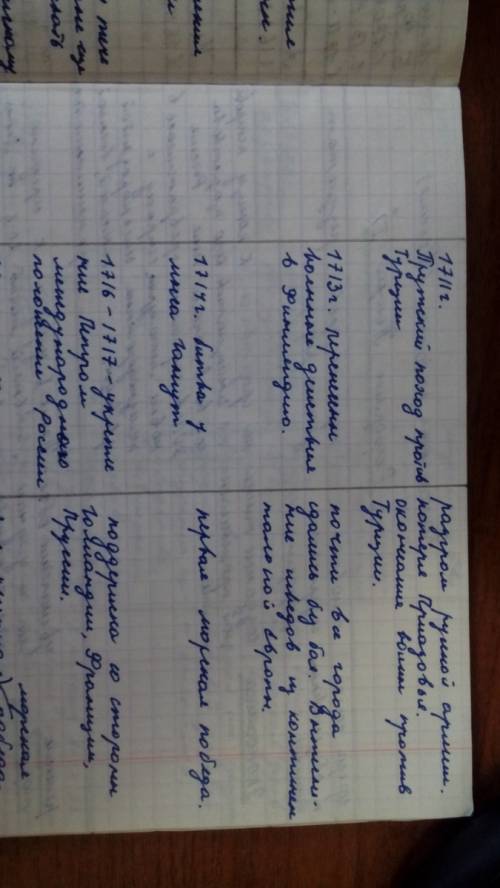 1711г.
Прутский поход против
Турции
разгром русской армии.
потеря Приазовья.
окончание войны против
Турции.
1713г. перенесены
военные действия
в Финляндию.
почти все города
сдались без боя. Вытесне-
ние шведов из континен
тальной Европы.
1714г. битва у
мыса Гангут
первая морская победа.
1716-1717-укрепле
ние Петром
международного
положения России.
поддержка со стороны
Голландии, Франции,
Пруссии.
морская